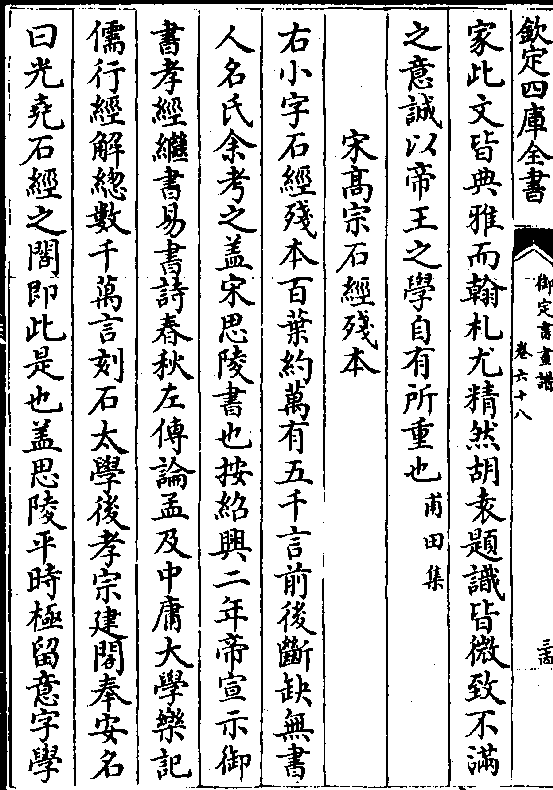 欽定四庫全書
御定書畫譜
卷六十八
三十四
家此文皆典雅而翰札尤精然胡袁題識皆微致不滿
之意誠以帝王之學自有所重也甫田集
宋髙宗石經殘本
右小字石經殘本百葉約萬有五千言前後斷缺無書
人名氏余考之盖宋思陵書也按紹興二年帝宣示御
書孝經繼書易書詩春秋左傳論孟及中庸大學樂記
儒行經解總數千萬言刻石太學後孝宗建閣奉安名
曰光堯石經之閣即此是也盖思陵平時極留意字學